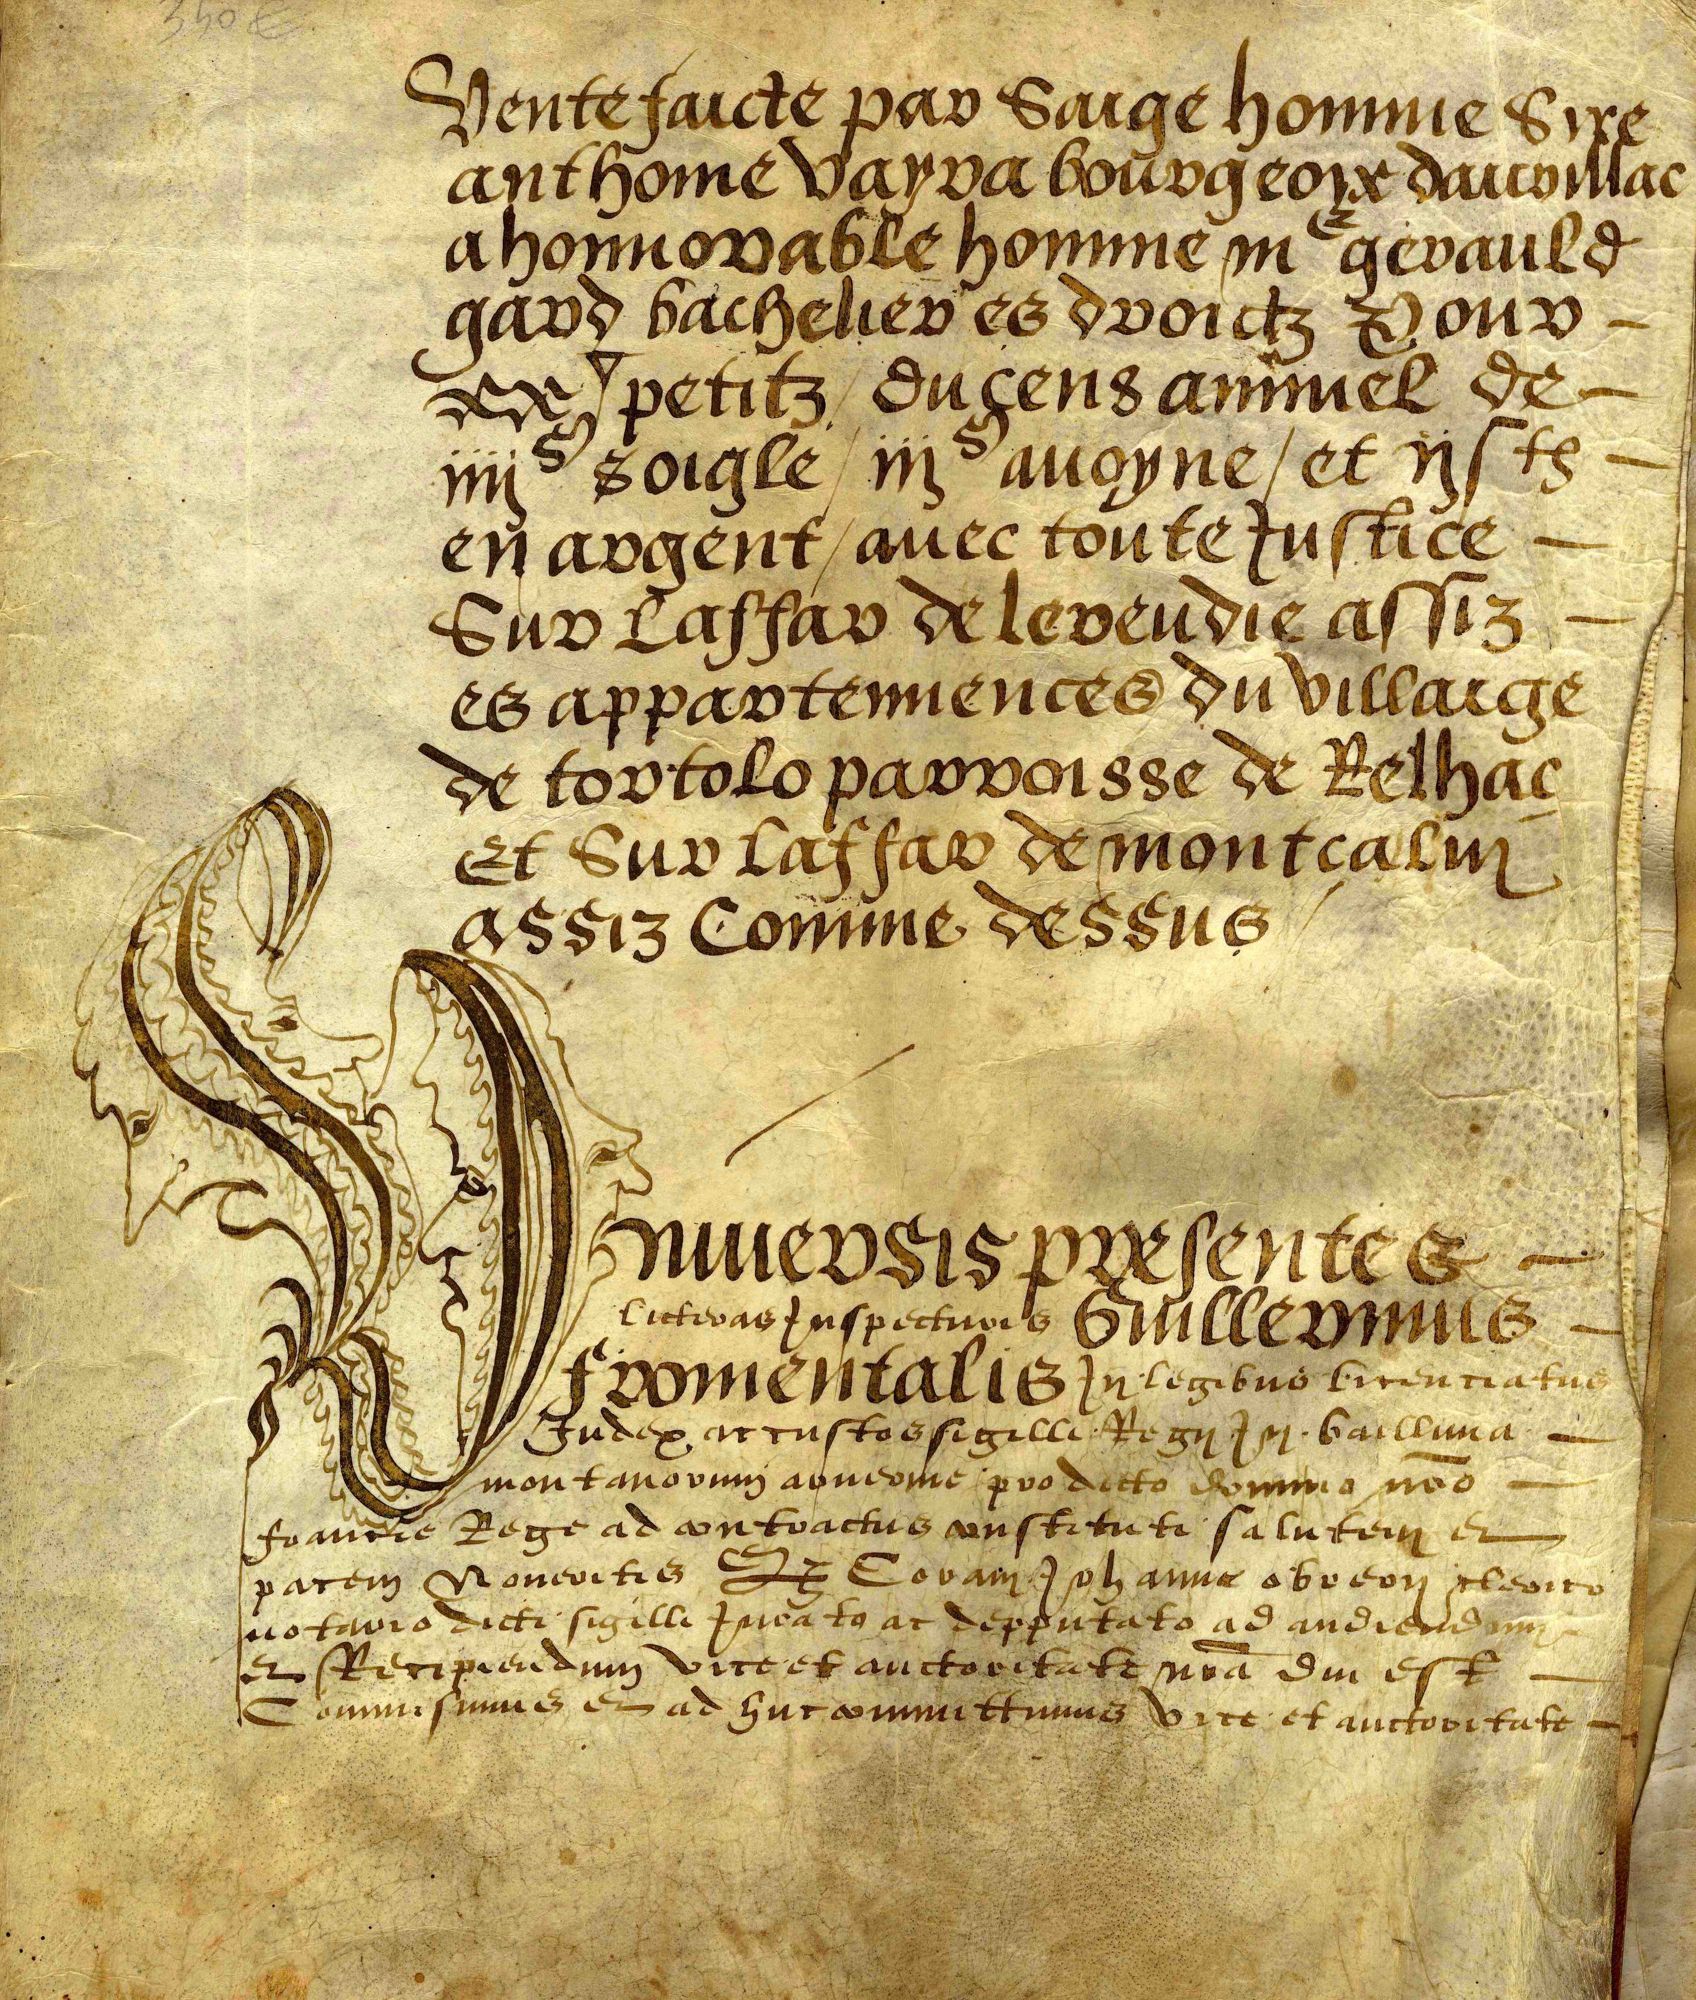 350 €
Vente faicte par Saige homme Sire
anthoine vayra bourgeoix daurillac
a honnorable homme mᵉ gerauld
gard bachelier es droictz Pour
xx petitz / du cens annuel de
iiijˢ soigle / iijˢ auoyne / et ijs tˢ
en argent / auec toute Justice
Sur Laffar de leveudie assiz
es appartennences du villaige
de tortolo parroisse de Relhac
Et Sur Laffar de montcalm
assiz Comme dessus
Vniuersis presentes
licteras Inspecturis Guillermus
fromentalis In legibus licenciatus
Judex ac custos sigilli Regij In bailliuia
montanorum aruernie pro dicto domino nrō
francie Rege ad contractus constituti salutem et
pacem Noueritis Coram Johanne obreri clerico
notario dicti sigilli Jurato ac depputato ad audiendum
et Recipiendum vice et auctoritate nrā Cui est
Commisimus et ad huc committimus vice et auctoritate